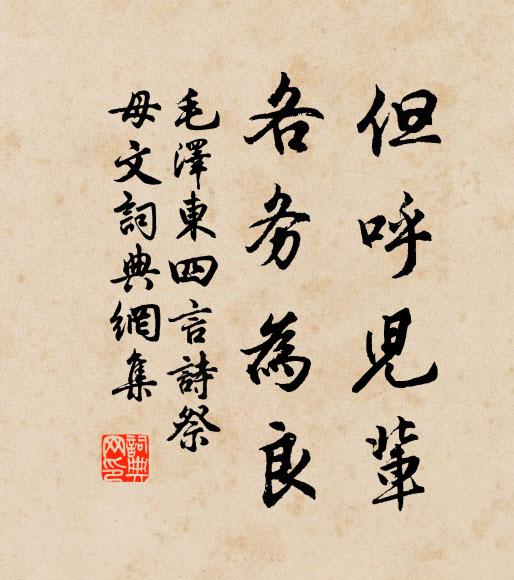 但呼児輩
各务為良
毛澤東四言詩祭
母文詞典網集
詞典
网印